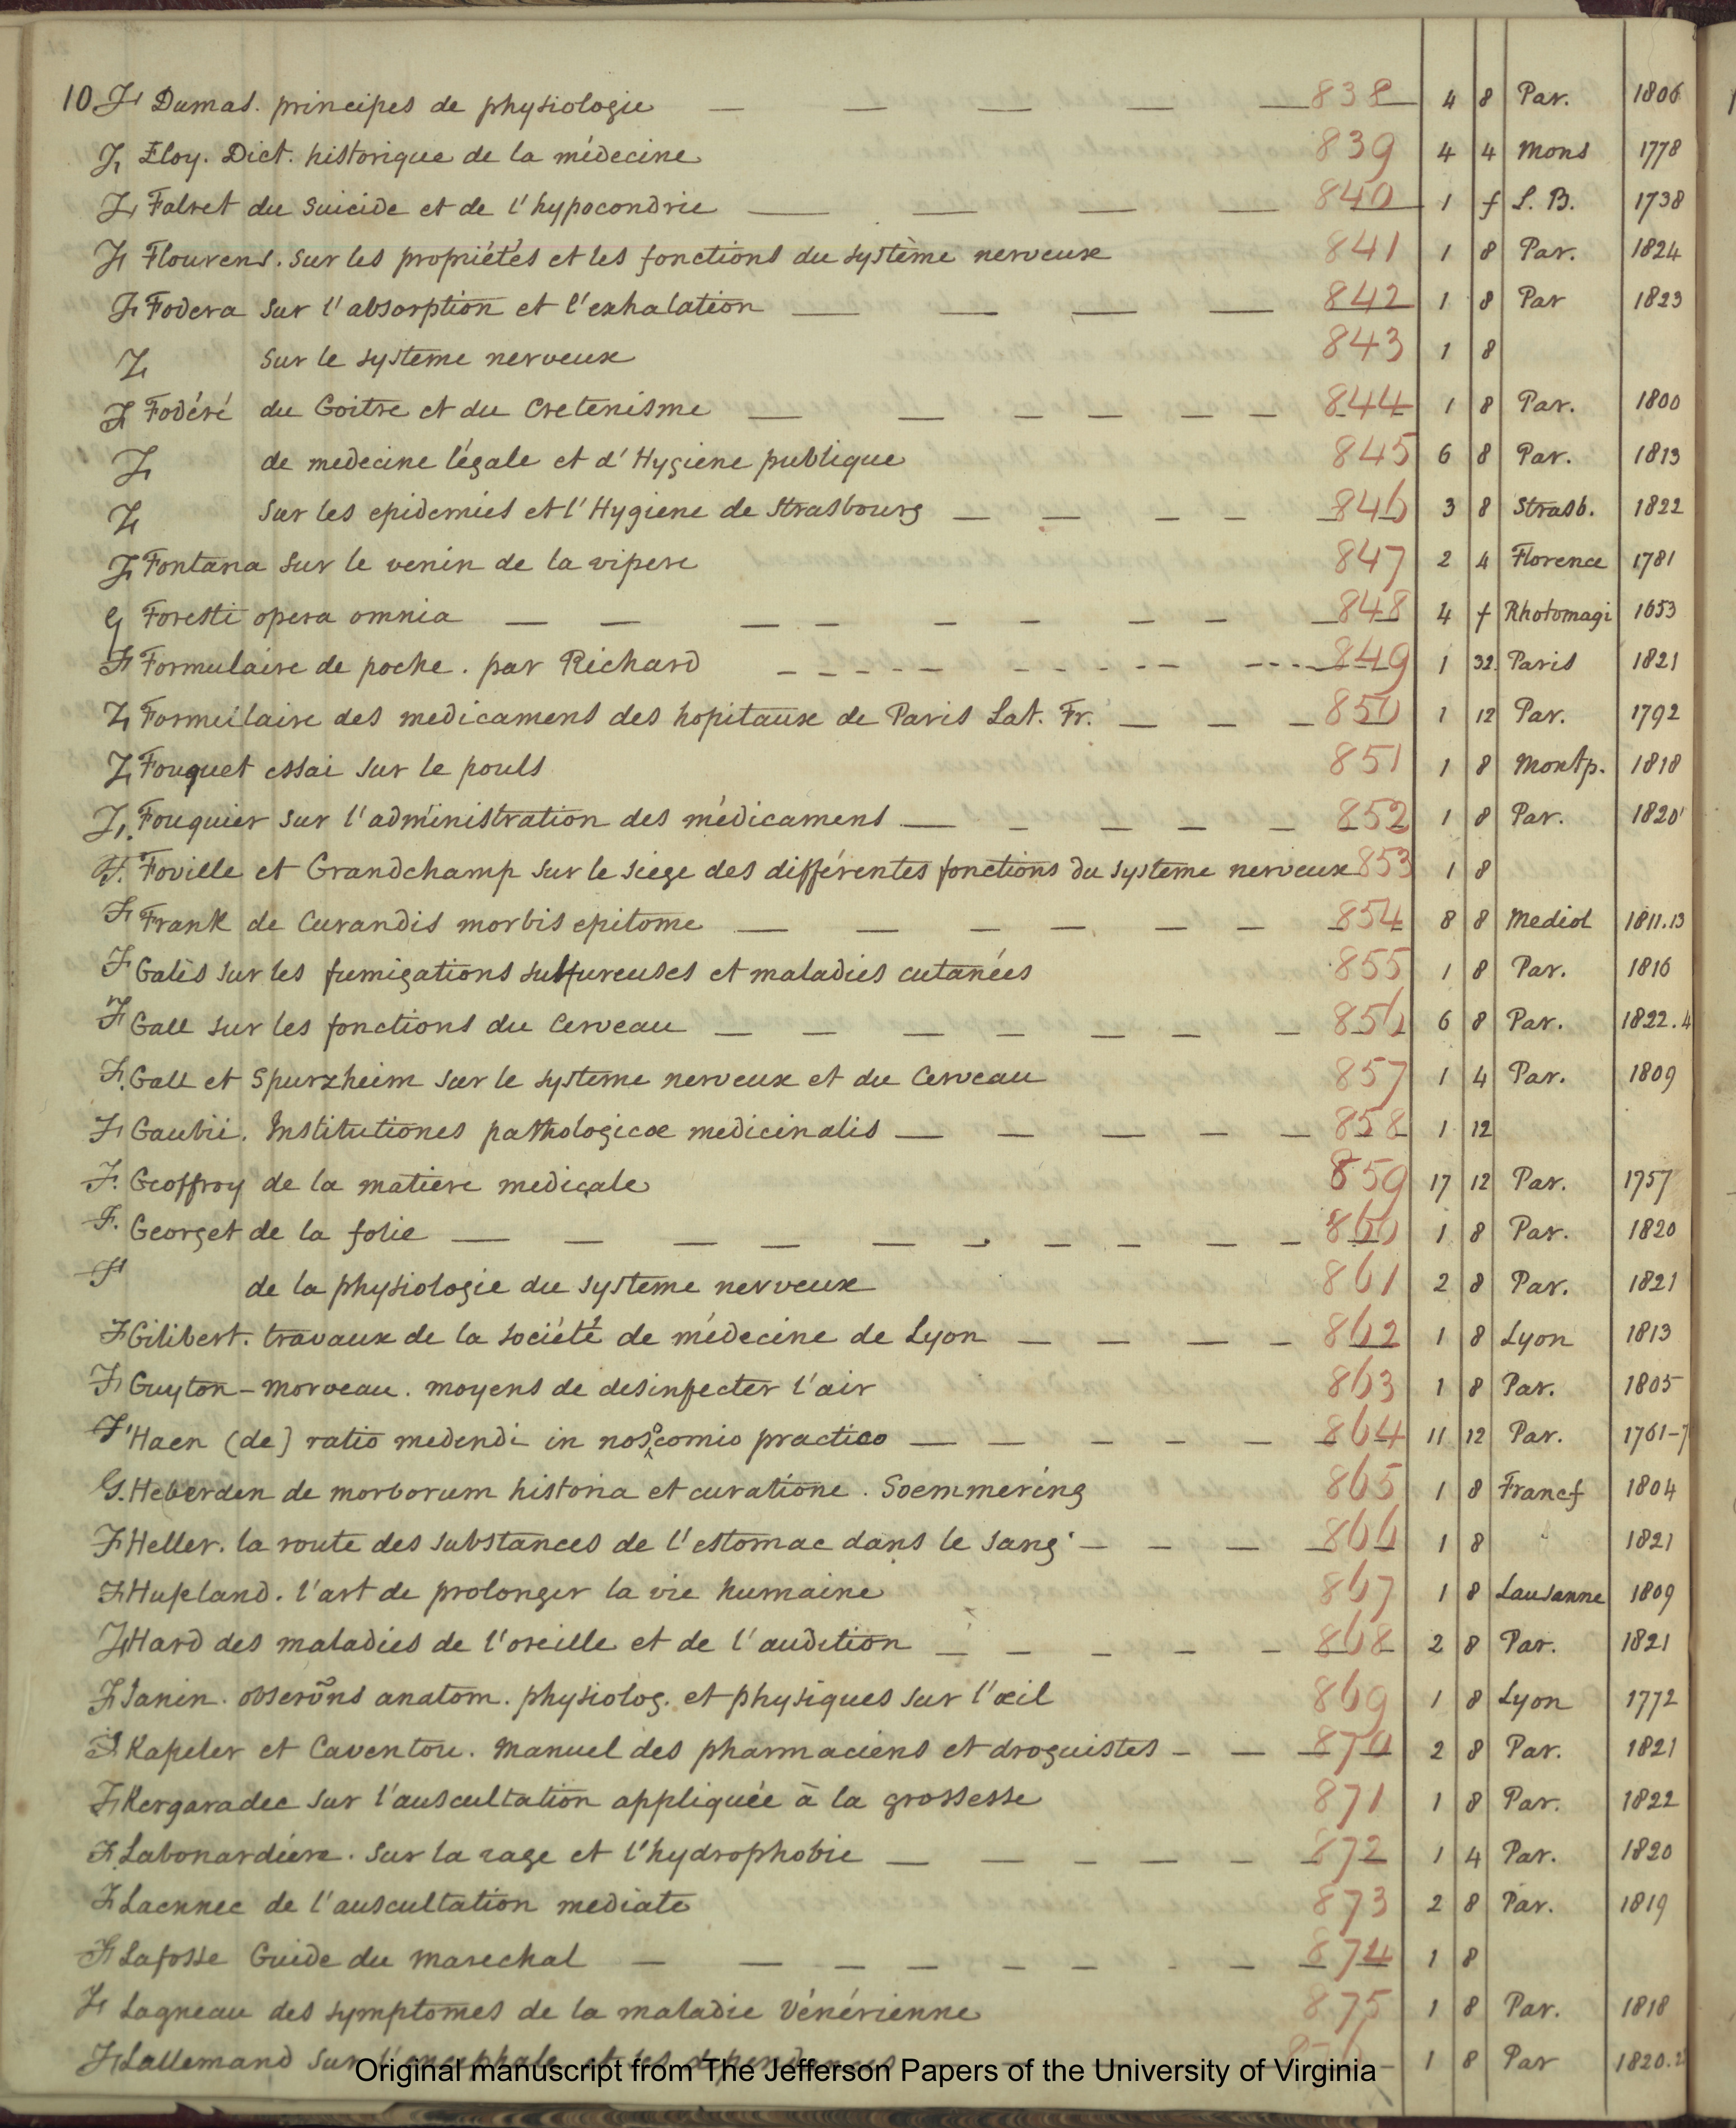 10 F Dumas. principes de physiologie — — — — — 838 4 8 Par. 1806
F Eloy. Dict. historique de la médecine 839 4 4 Mons 1778
F Falret du Suicide et de l'hypocondrie — — — — 840 1 f L. B. 1738
F Flourens. sur les propriétés et les fonctions du système nerveux 841 1 8 Par. 1824
F Fodera sur l'absorption et l'exhalation — — — — 842 1 8 Par 1823
F sur le systeme nerveux 843 1 8
F Fodéré du Goitre et du Cretenisme — — — — — — 844 1 8 Par. 1800
F de medecine légale et d'Hygiene publique 845 6 8 Par. 1813
F sur les epidemies et l'Hygiene de Strasbourg — — — — 846 3 8 Strasb. 1822
F Fontana sur le venin de la vipere 847 2 4 Florence 1781
G Foresti opera omnia — — — — — — — — 848 4 f Rhotomagi 1653
F Formulaire de poche. par Richard - - - - - - - - - - 849 1 32 Paris 1821
F Formulaire des medicamens des hopitaux de Paris Lat. Fr. — — — 850 1 12 Par. 1792
F Fouquet essai sur le pouls 851 1 8 Montp. 1818
F. Fouquier sur l'administration des médicamens — — — — — 852 1 8 Par. 1820
F. Foville et Grandchamp sur le siege des différentes fonctions du systeme nerveux 853 1 8
F Frank de Curandis morbis epitome — — — — — — 854 8 8 Mediol 1811.13
F Galès sur les fumigations sulfureuses et maladies cutanées 855 1 8 Par. 1816
F Gall sur les fonctions du Cerveau — — — — — — — 856 6 8 Par. 1822.4
F. Gall et Spurzheim sur le systeme nerveux et du Cerveau 857 1 4 Par. 1809
F Gaubii. Institutiones pathologicæ medicinalis — — — — — 858 1 12
F. Geoffroy de la matiere medicale 859 17 12 Par. 1757
F. Georget de la folie — — — — — — — — — — 860 1 8 Par. 1820
F de la physiologie du systeme nerveux 861 2 8 Par. 1821
F Gilibert. travaux de la société de médecine de Lyon — — — — 862 1 8 Lyon 1813
F Guyton-Morveau. moyens de desinfecter l'air 863 1 8 Par. 1805
F Haen (de) ratio medendi in nosocomio practico — — — — — 864 11 12 Par. 1761-7
G. Heberden de morborum historia et curatione. Soemmering 865 1 8 Francf 1804
F Heller. la route des substances de l'estomac dans le sang — — — 866 1 8 " 1821
F Hufeland. l'art de prolonger la vie humaine 867 1 8 Lausanne 1809
F Itard des maladies de l'oreille et de l'audition — — — — — 868 2 8 Par. 1821
F Janin. observõns anatom. physiolog. et physiques sur l'œil 869 1 8 Lyon 1772
F Kapeler et Caventou. Manuel des pharmaciens et droguistes — — 870 2 8 Par. 1821
F Kergaradec sur l'auscultation appliquée à la grossesse 871 1 8 Par. 1822
F. Labonardière. sur la rage et l'hydrophobie — — — — — 872 1 4 Par. 1820
F Laennec de l'auscultation mediate 873 2 8 Par. 1819
F Lafosse Guide du marechal — — — — — — — — 874 1 8
F Lagneau des symptomes de la maladie vénérienne 875 1 8 Par. 1818
F Lallemand sur l'encephale et ses dependances 876 1 8 Par 1820.2
Original manuscript from The Jefferson Papers of the University of Virginia